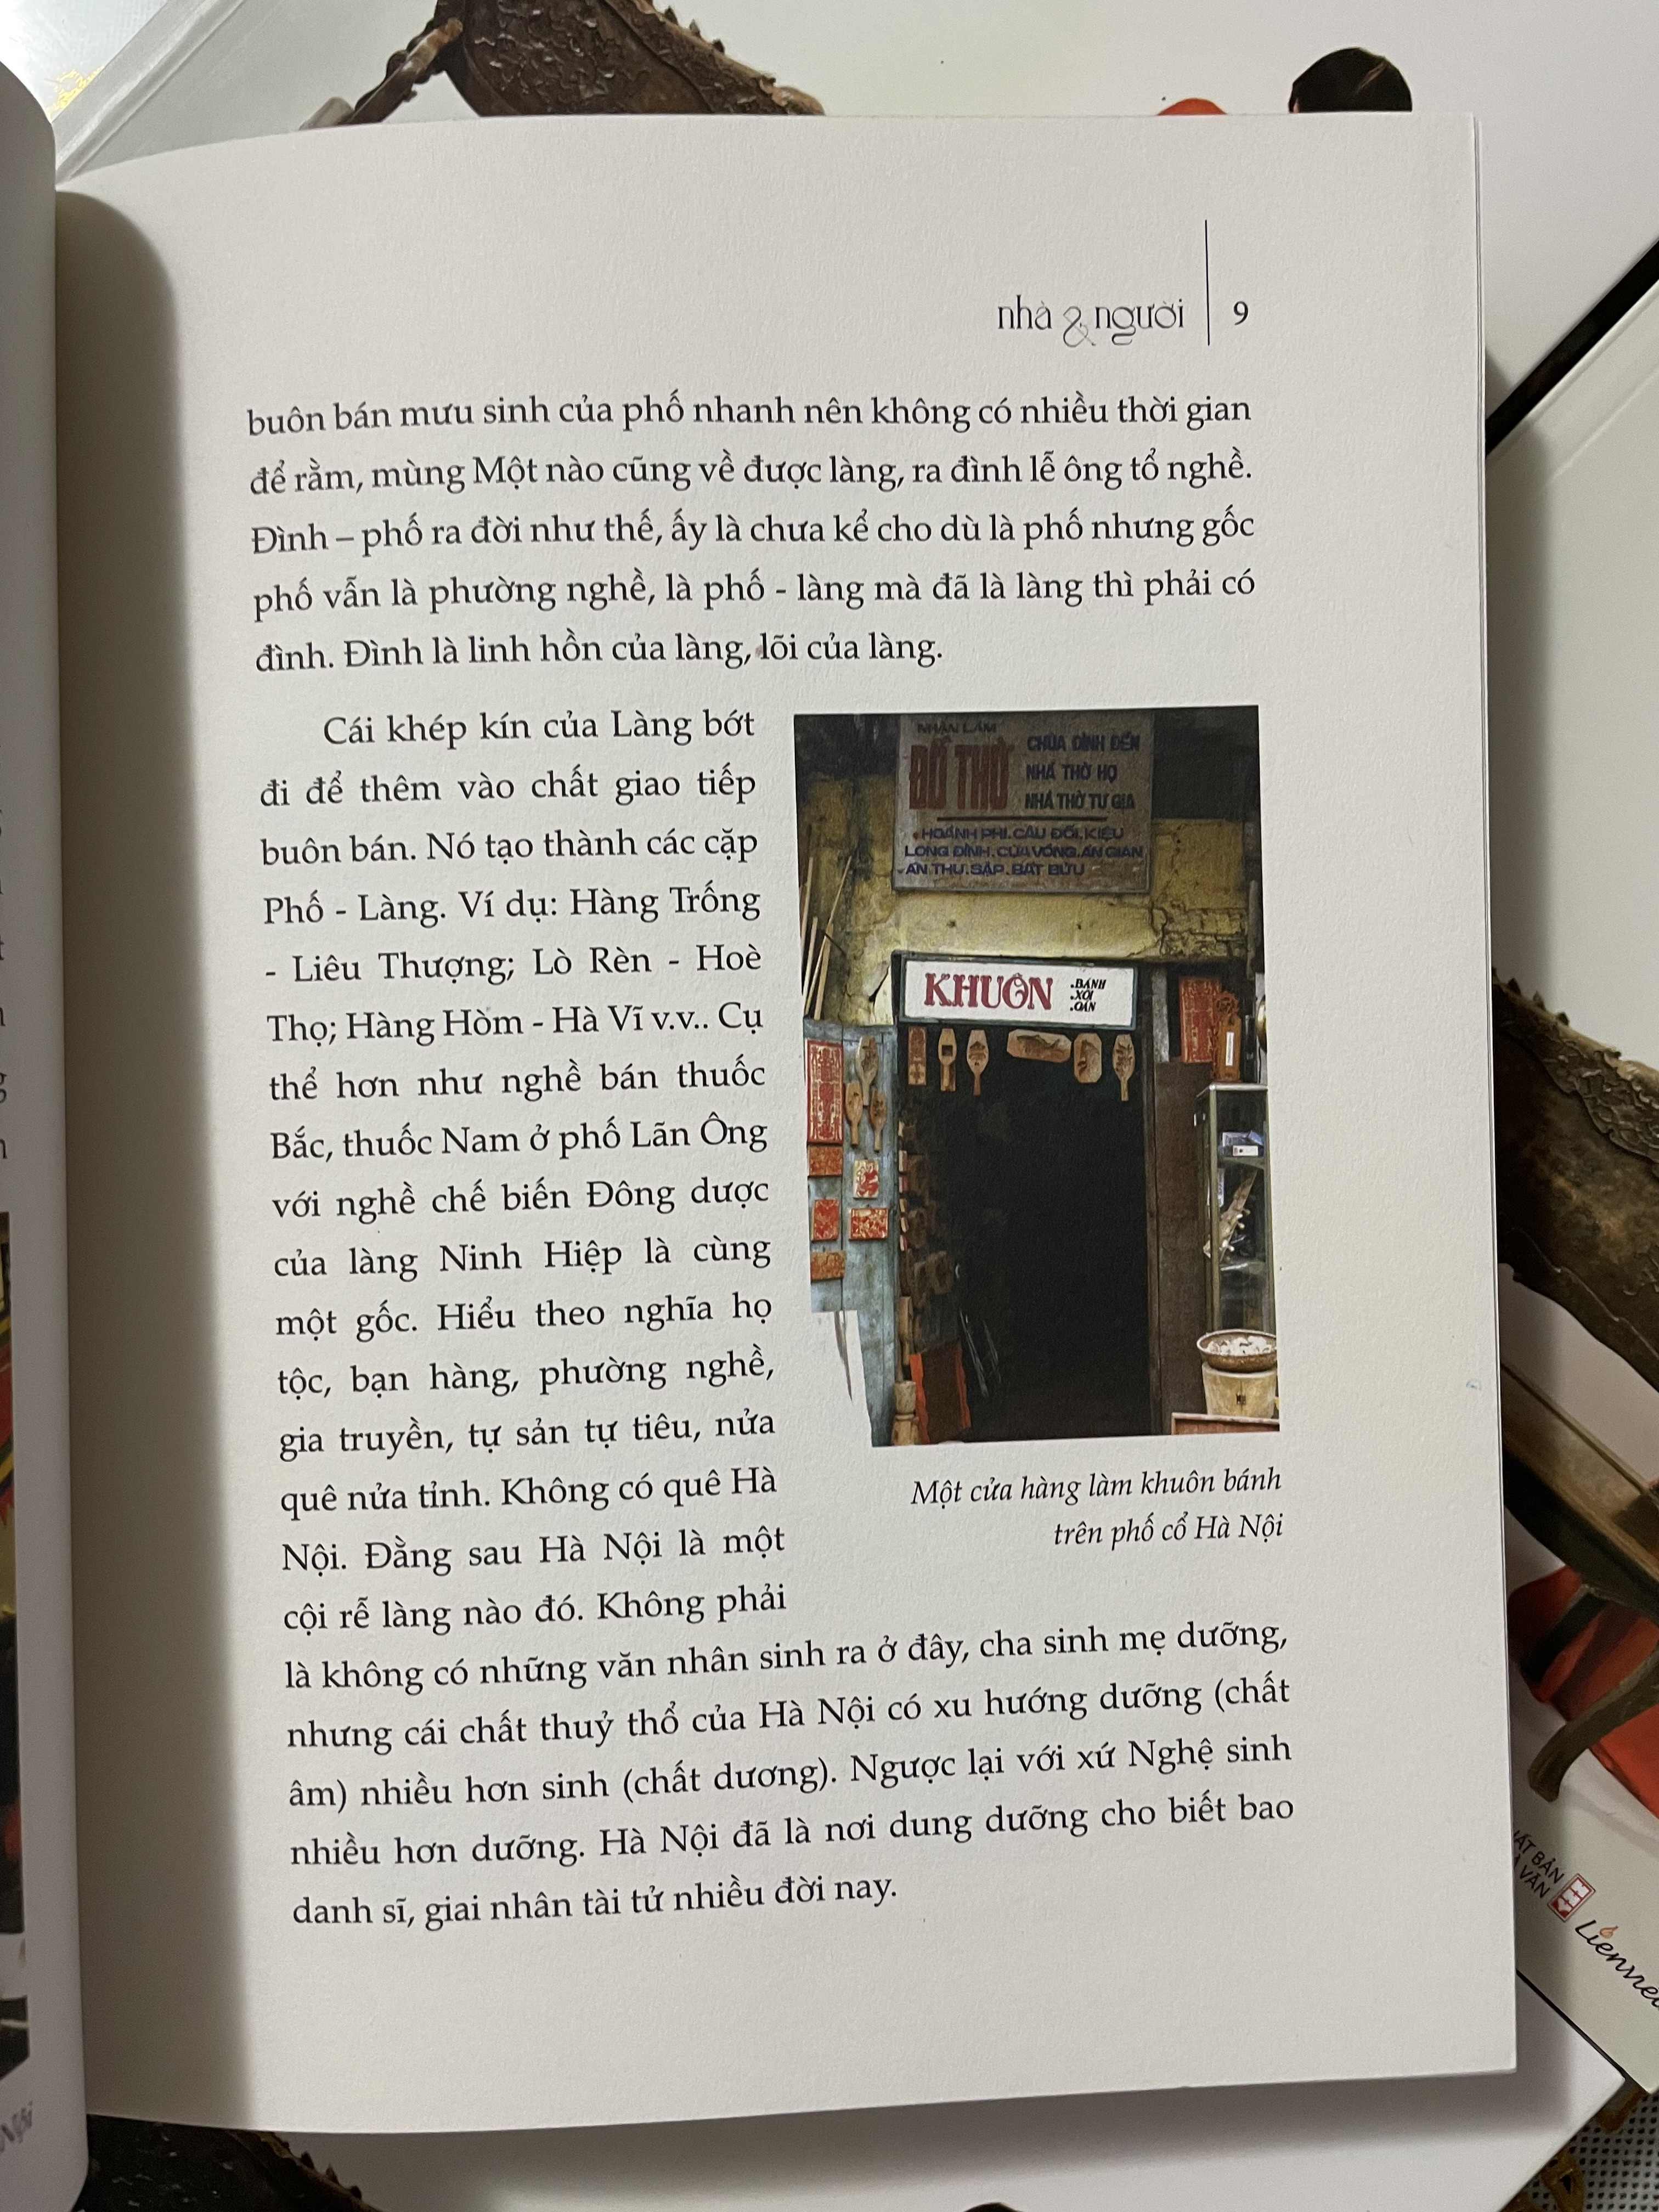 nhà & người 9
buôn bán mưu sinh của phố nhanh nên không có nhiều thời gian
để rằm, mùng Một nào cũng về được làng, ra đình lễ ông tổ nghề.
Đình – phố ra đời như thế, ấy là chưa kể cho dù là phố nhưng gốc
phố vẫn là phường nghề, là phố - làng mà đã là làng thì phải có
đình. Đình là linh hồn của làng, lõi của làng.
Cái khép kín của Làng bớt
đi để thêm vào chất giao tiếp
buôn bán. Nó tạo thành các cặp
Phố - Làng. Ví dụ: Hàng Trống
- Liêu Thượng; Lò Rèn - Hoè
Thọ; Hàng Hòm - Hà Vĩ v.v.. Cụ
thể hơn như nghề bán thuốc
Bắc, thuốc Nam ở phố Lãn Ông
với nghề chế biến Đông dược
của làng Ninh Hiệp là cùng
một gốc. Hiểu theo nghĩa họ
tộc, bạn hàng, phường nghề,
gia truyền, tự sản tự tiêu, nửa
quê nửa tỉnh. Không có quê Hà
Nội. Đằng sau Hà Nội là một
cội rễ làng nào đó. Không phải
là không có những văn nhân sinh ra ở đây, cha sinh mẹ dưỡng,
nhưng cái chất thuỷ thổ của Hà Nội có xu hướng dưỡng (chất
âm) nhiều hơn sinh (chất dương). Ngược lại với xứ Nghệ sinh
nhiều hơn dưỡng. Hà Nội đã là nơi dung dưỡng cho biết bao
danh sĩ, giai nhân tài tử nhiều đời nay.
NHẬN LÀM
ĐỒ THỜ
CHÙA ĐÌNH ĐỀN
NHÀ THỜ HỌ
NHÀ THỜ TƯ GIA
HOÀNH PHI.CÂU ĐỐI.KIỆU
LONG ĐÌNH.CỬA VÕNG.ÁN GIAN
ÁN THƯ.SẬP.BÁT BỬU
KHUÔN
.BÁNH
.XÔI
.OẢN
Một cửa hàng làm khuôn bánh
trên phố cổ Hà Nội
BẢN
VĂN